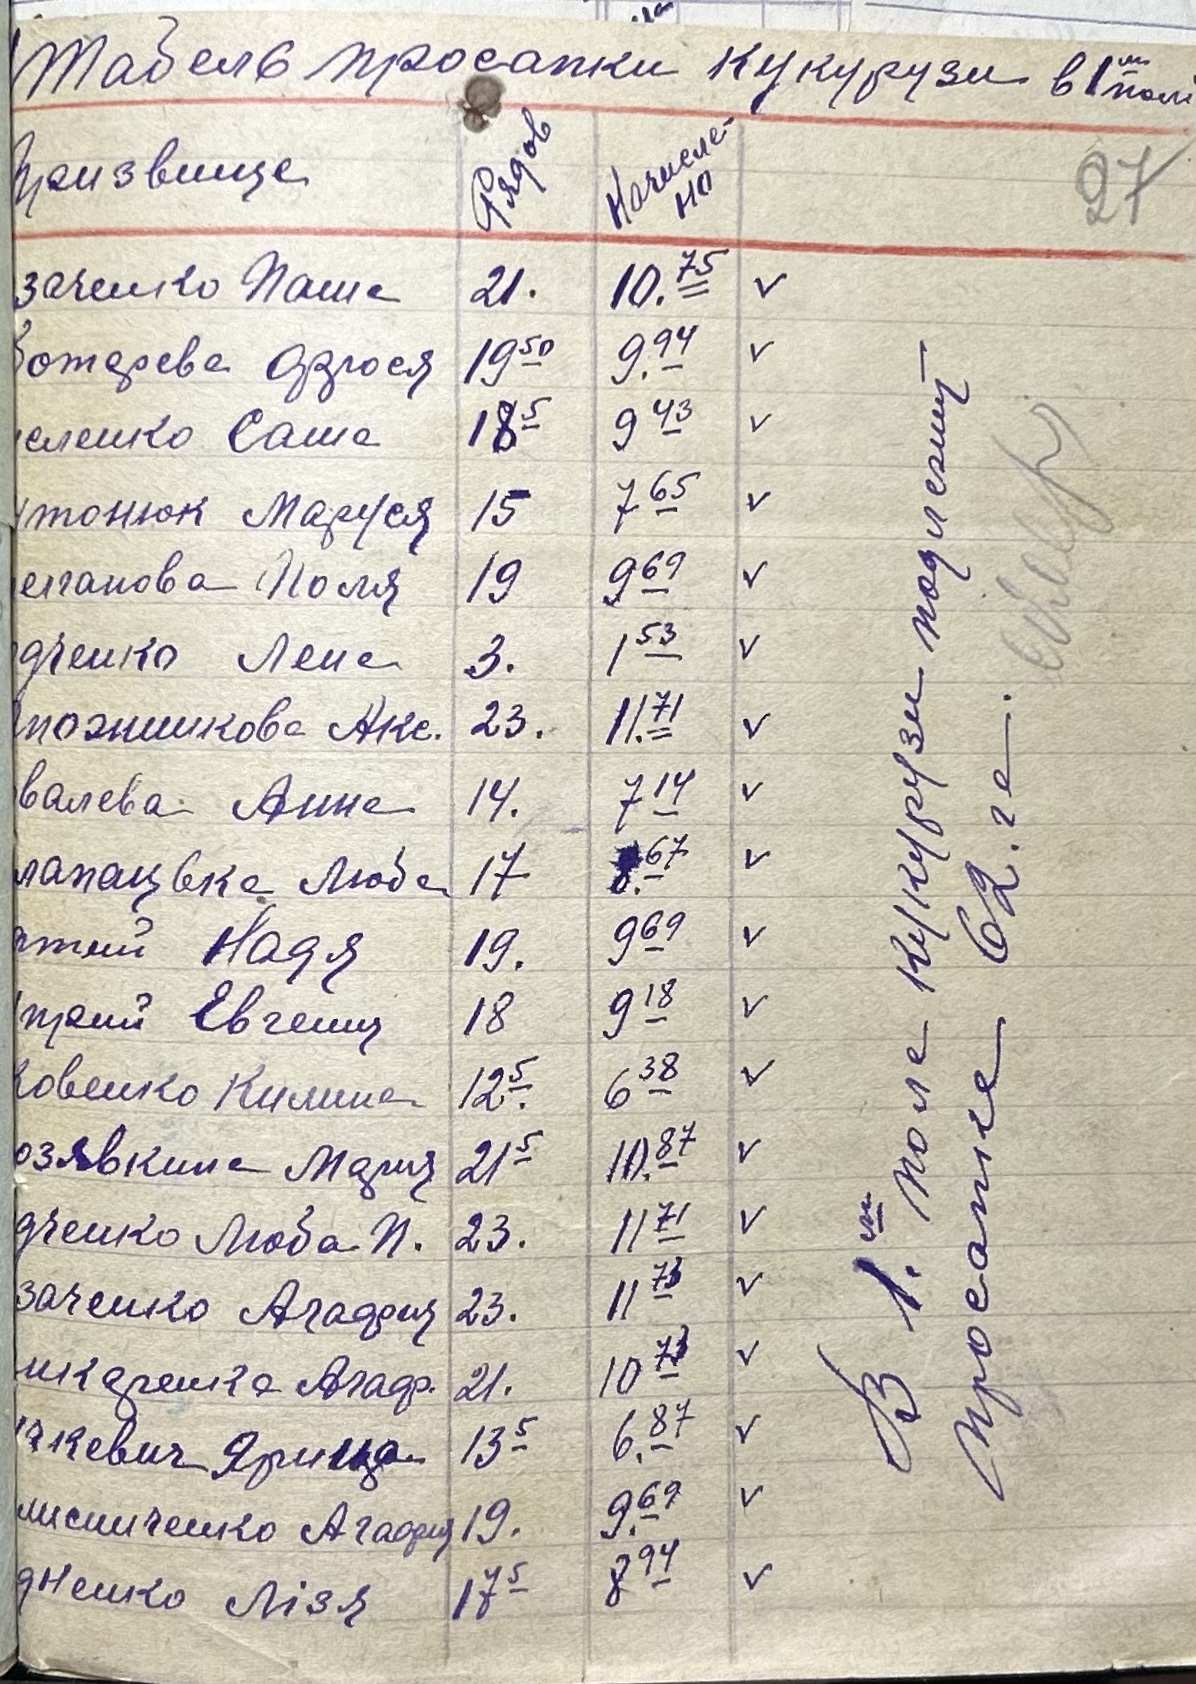 Табель просапки кукурузи в 1м полі
Призвище Рядов Начисле-
но
97
заченко Паша 21. 10.75 v
ботарева Фрося 19 50 9.94 v
сленко Саша 18 5 9 43 v
утонюк Маруся 15 7 65 v
епанова Поля 19 9 69 v
дченко Лена 3. 1 53 v
апожникова Акс. 23. 11.71 v
валева Анна 14. 7 14 v
Люба 17 8.67 v
Надя 19. 9 69 v
Евгения 18 9 18 v
ковенко Килина 12 5. 6 38 v
озявкина Мария 21 5 10.87 v
дченко Люба П. 23. 11 71 v
заченко Агафия 23. 11 73 v
Агаф. 21. 10 73 v
цкевич Ярина 13 5 6.87 v
лисниченко Агафия 19. 9.69 v
дненко Лізя 17 5 8 94 v
В 1.м поле кукурузи подлежит
просапке 62.га.